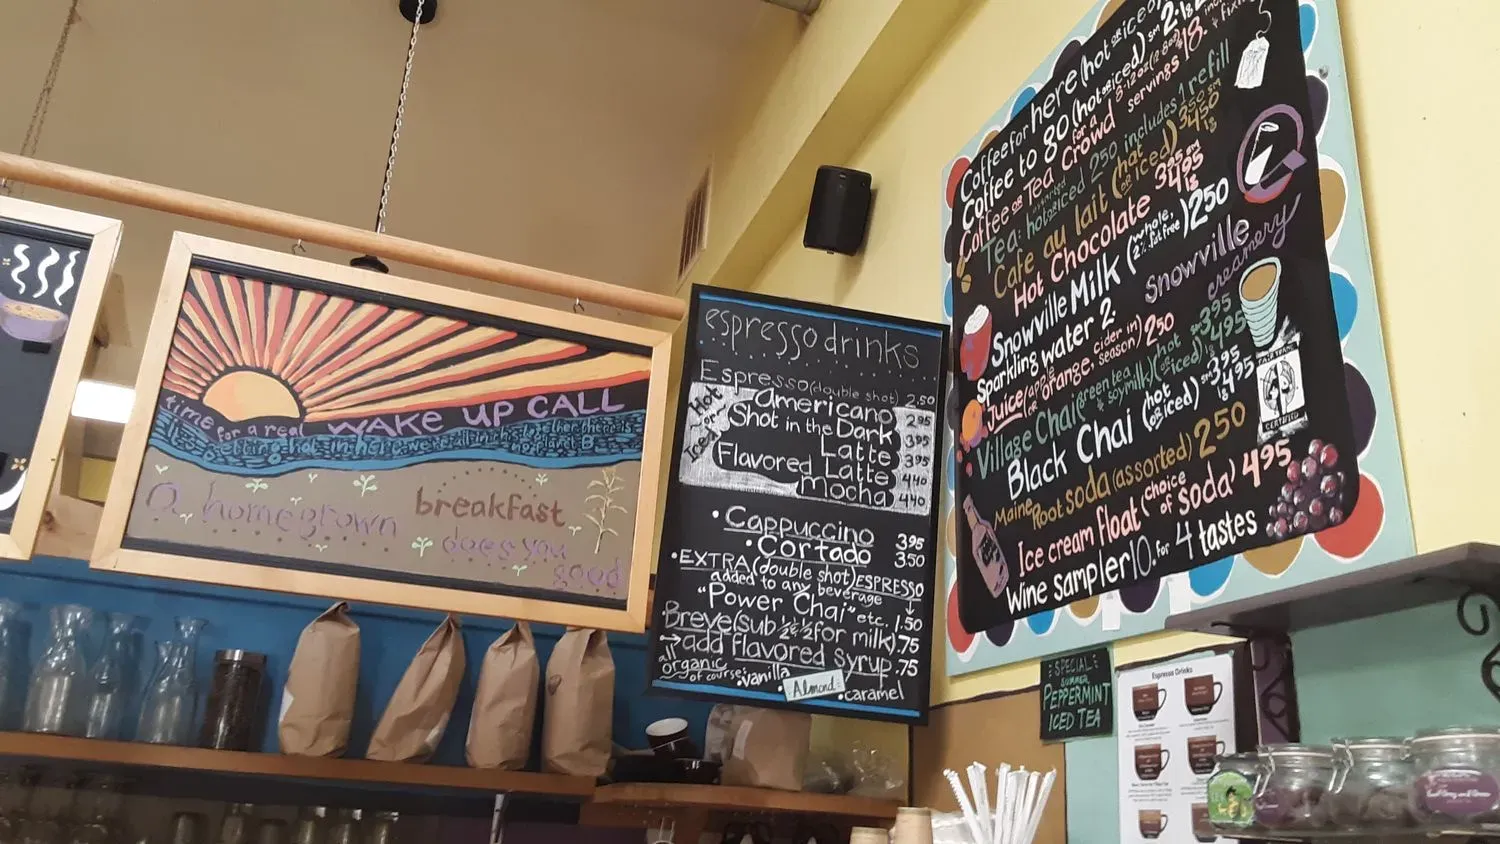 time for a real WAKE UP CALL
a homegrown breakfast
does you
good
espresso drinks
Espresso (double shot) 2.50
Hot or Iced
americano 2.95
Shot in the Dark 3.95
Latte 3.95
Flavored Latte 4.40
mocha 4.40
• Cappuccino 3.95
• Cortado 3.50
• EXTRA (double shot) ESPRESSO
added to any beverage
"Power Chai" etc. 1.50
Breve (sub ½ & ½ for milk) .75
→ add flavored syrup .75
all organic of course: • vanilla
• Almond • caramel
Coffee for here (hot or iced)
Coffee to go (hot or iced) sm
Coffee or Tea for a Crowd servings 18.
Tea: hot or iced 2.50 includes 1 refill
Cafe au lait (hot or iced) 3.50 sm 4.50 lg
Hot Chocolate 3.95 sm 4.95 lg
Snowville Milk (whole, 2%, fat free) 2.50
Snowville creamery
Sparkling water 2.
Juice (apple or orange, cider in season) 2.50
Village Chai (green tea & soymilk) (hot or iced) sm 3.95 lg 4.95
Black Chai (hot or iced) sm 3.95 lg 4.95
FAIR TRADE
CERTIFIED
Maine Root soda (assorted) 2.50
Ice cream float (choice of soda) 4.95
Wine sampler 10. for 4 tastes
SPECIAL:
SUMMER
PEPPERMINT
ICED TEA
Espresso Drinks